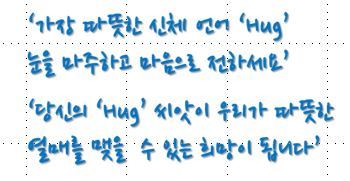 ‘가장 따뜻한 신체 언어 ‘Hug’
눈을 마주하고 마음으로 전하세요’
‘당신의 ‘Hug’ 씨앗이 우리가 따뜻한
열매를 맺을 수 있는 희망이 됩니다’